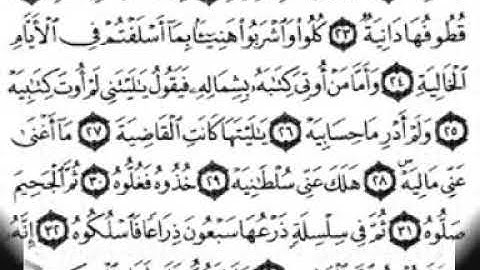 قُطُوفُهَا دَانِيَةٌ ﴿٢٣﴾ كُلُوا۟ وَٱشْرَبُوا۟ هَنِيٓـًٔۢا بِمَآ أَسْلَفْتُمْ فِى ٱلْأَيَّامِ
ٱلْخَالِيَةِ ﴿٢٤﴾ وَأَمَّا مَنْ أُوتِىَ كِتَـٰبَهُۥ بِشِمَالِهِۦ فَيَقُولُ يَـٰلَيْتَنِى لَمْ أُوتَ كِتَـٰبِيَهْ
﴿٢٥﴾ وَلَمْ أَدْرِ مَا حِسَابِيَهْ ﴿٢٦﴾ يَـٰلَيْتَهَا كَانَتِ ٱلْقَاضِيَةَ ﴿٢٧﴾ مَآ أَغْنَىٰ
عَنِّى مَالِيَهْ ۜ ﴿٢٨﴾ هَلَكَ عَنِّى سُلْطَـٰنِيَهْ ﴿٢٩﴾ خُذُوهُ فَغُلُّوهُ ﴿٣٠﴾ ثُمَّ ٱلْجَحِيمَ
صَلُّوهُ ﴿٣١﴾ ثُمَّ فِى سِلْسِلَةٍ ذَرْعُهَا سَبْعُونَ ذِرَاعًا فَٱسْلُكُوهُ ﴿٣٢﴾ إِنَّهُۥ